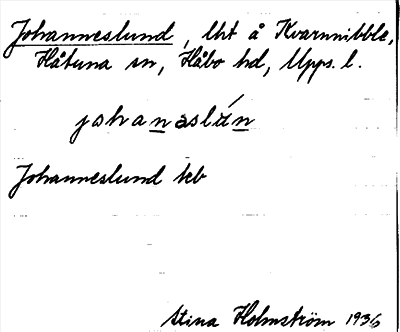 Johanneslund, lht å Kvarnnibble,
Håtuna sn, Håbo hd, Upps. l.
johanaslún
Johanneslund kb
Stina Holmström 1936